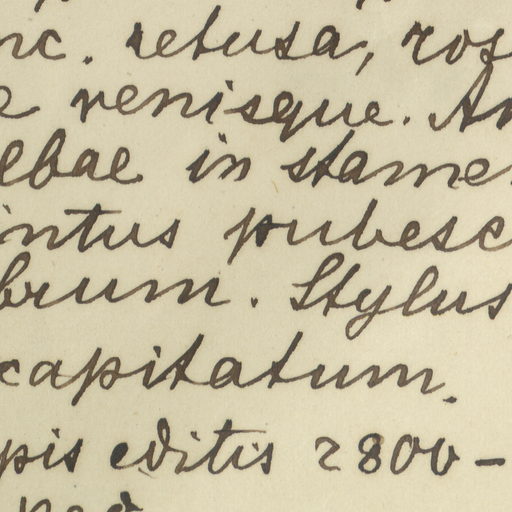 nc. retusa, ros
e venisque. An
lbae in stamen
intus pubesc
brum. Stylus
capitatum.
pis editis 2800-